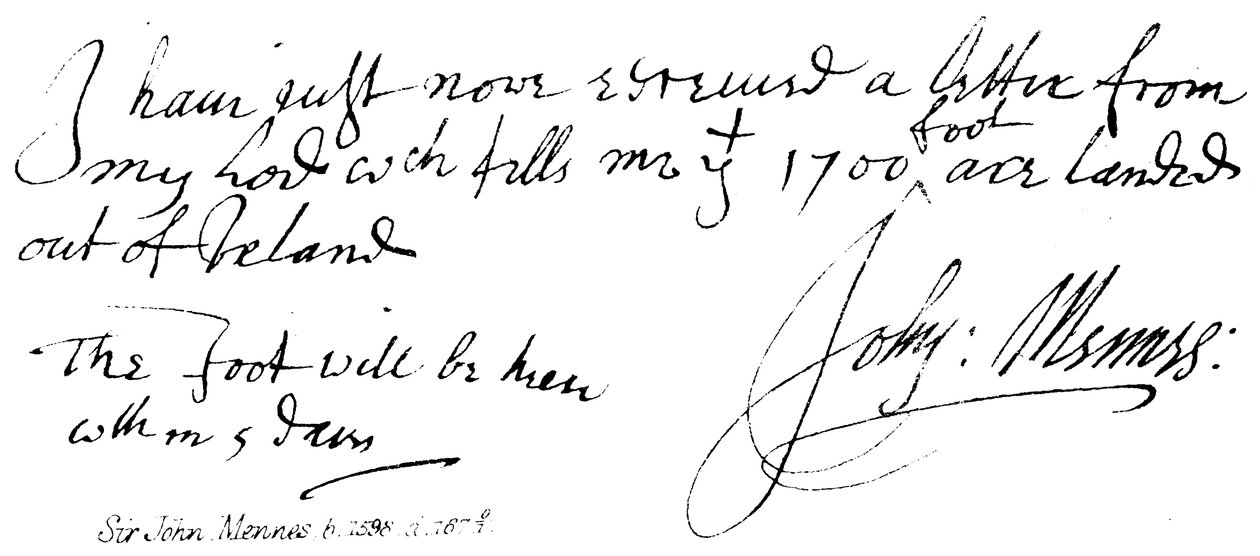 I haue iust nowe receiued a letter from
my Lord wch tells me yt 1700 foot are landed
out of Ireland
John: Mennes:
The foot will be heere
wth in 5 daies
Sir John Mennes b. 1598 d. 167 0/1.